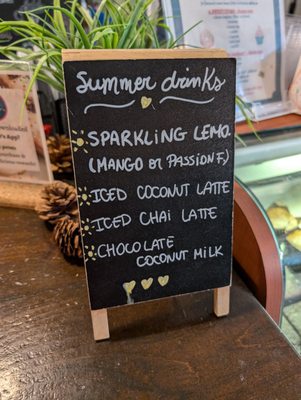 Summer drinks
SPARKLING LEMO.
(MANGO or PASSION F.)
ICED COCONUT LATTE
ICED CHAI LATTE
CHOCOLATE
COCONUT MILK